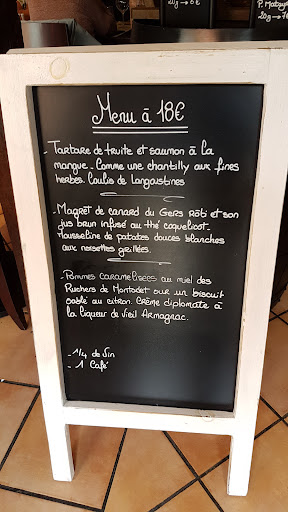 20g → 6€
P. Matzy
20g → 7€
Menu à 18€
-Tartare de truite et saumon à la
mangue. Comme une chantilly aux fines
herbes. Coulis de Langoustines
- Magret de canard du Gers Rôti et son
jus brun infusé au thé coquelicot.
Mousseline de patates douces blanches
aux noisettes grillées.
-Pommes caramelisées au miel des
Ruchers de Montadet sur un biscuit
sablé au citron. Crème diplomate à
la liqueur de Vieil Armagnac.
- 1/4 de Vin
- 1 Café